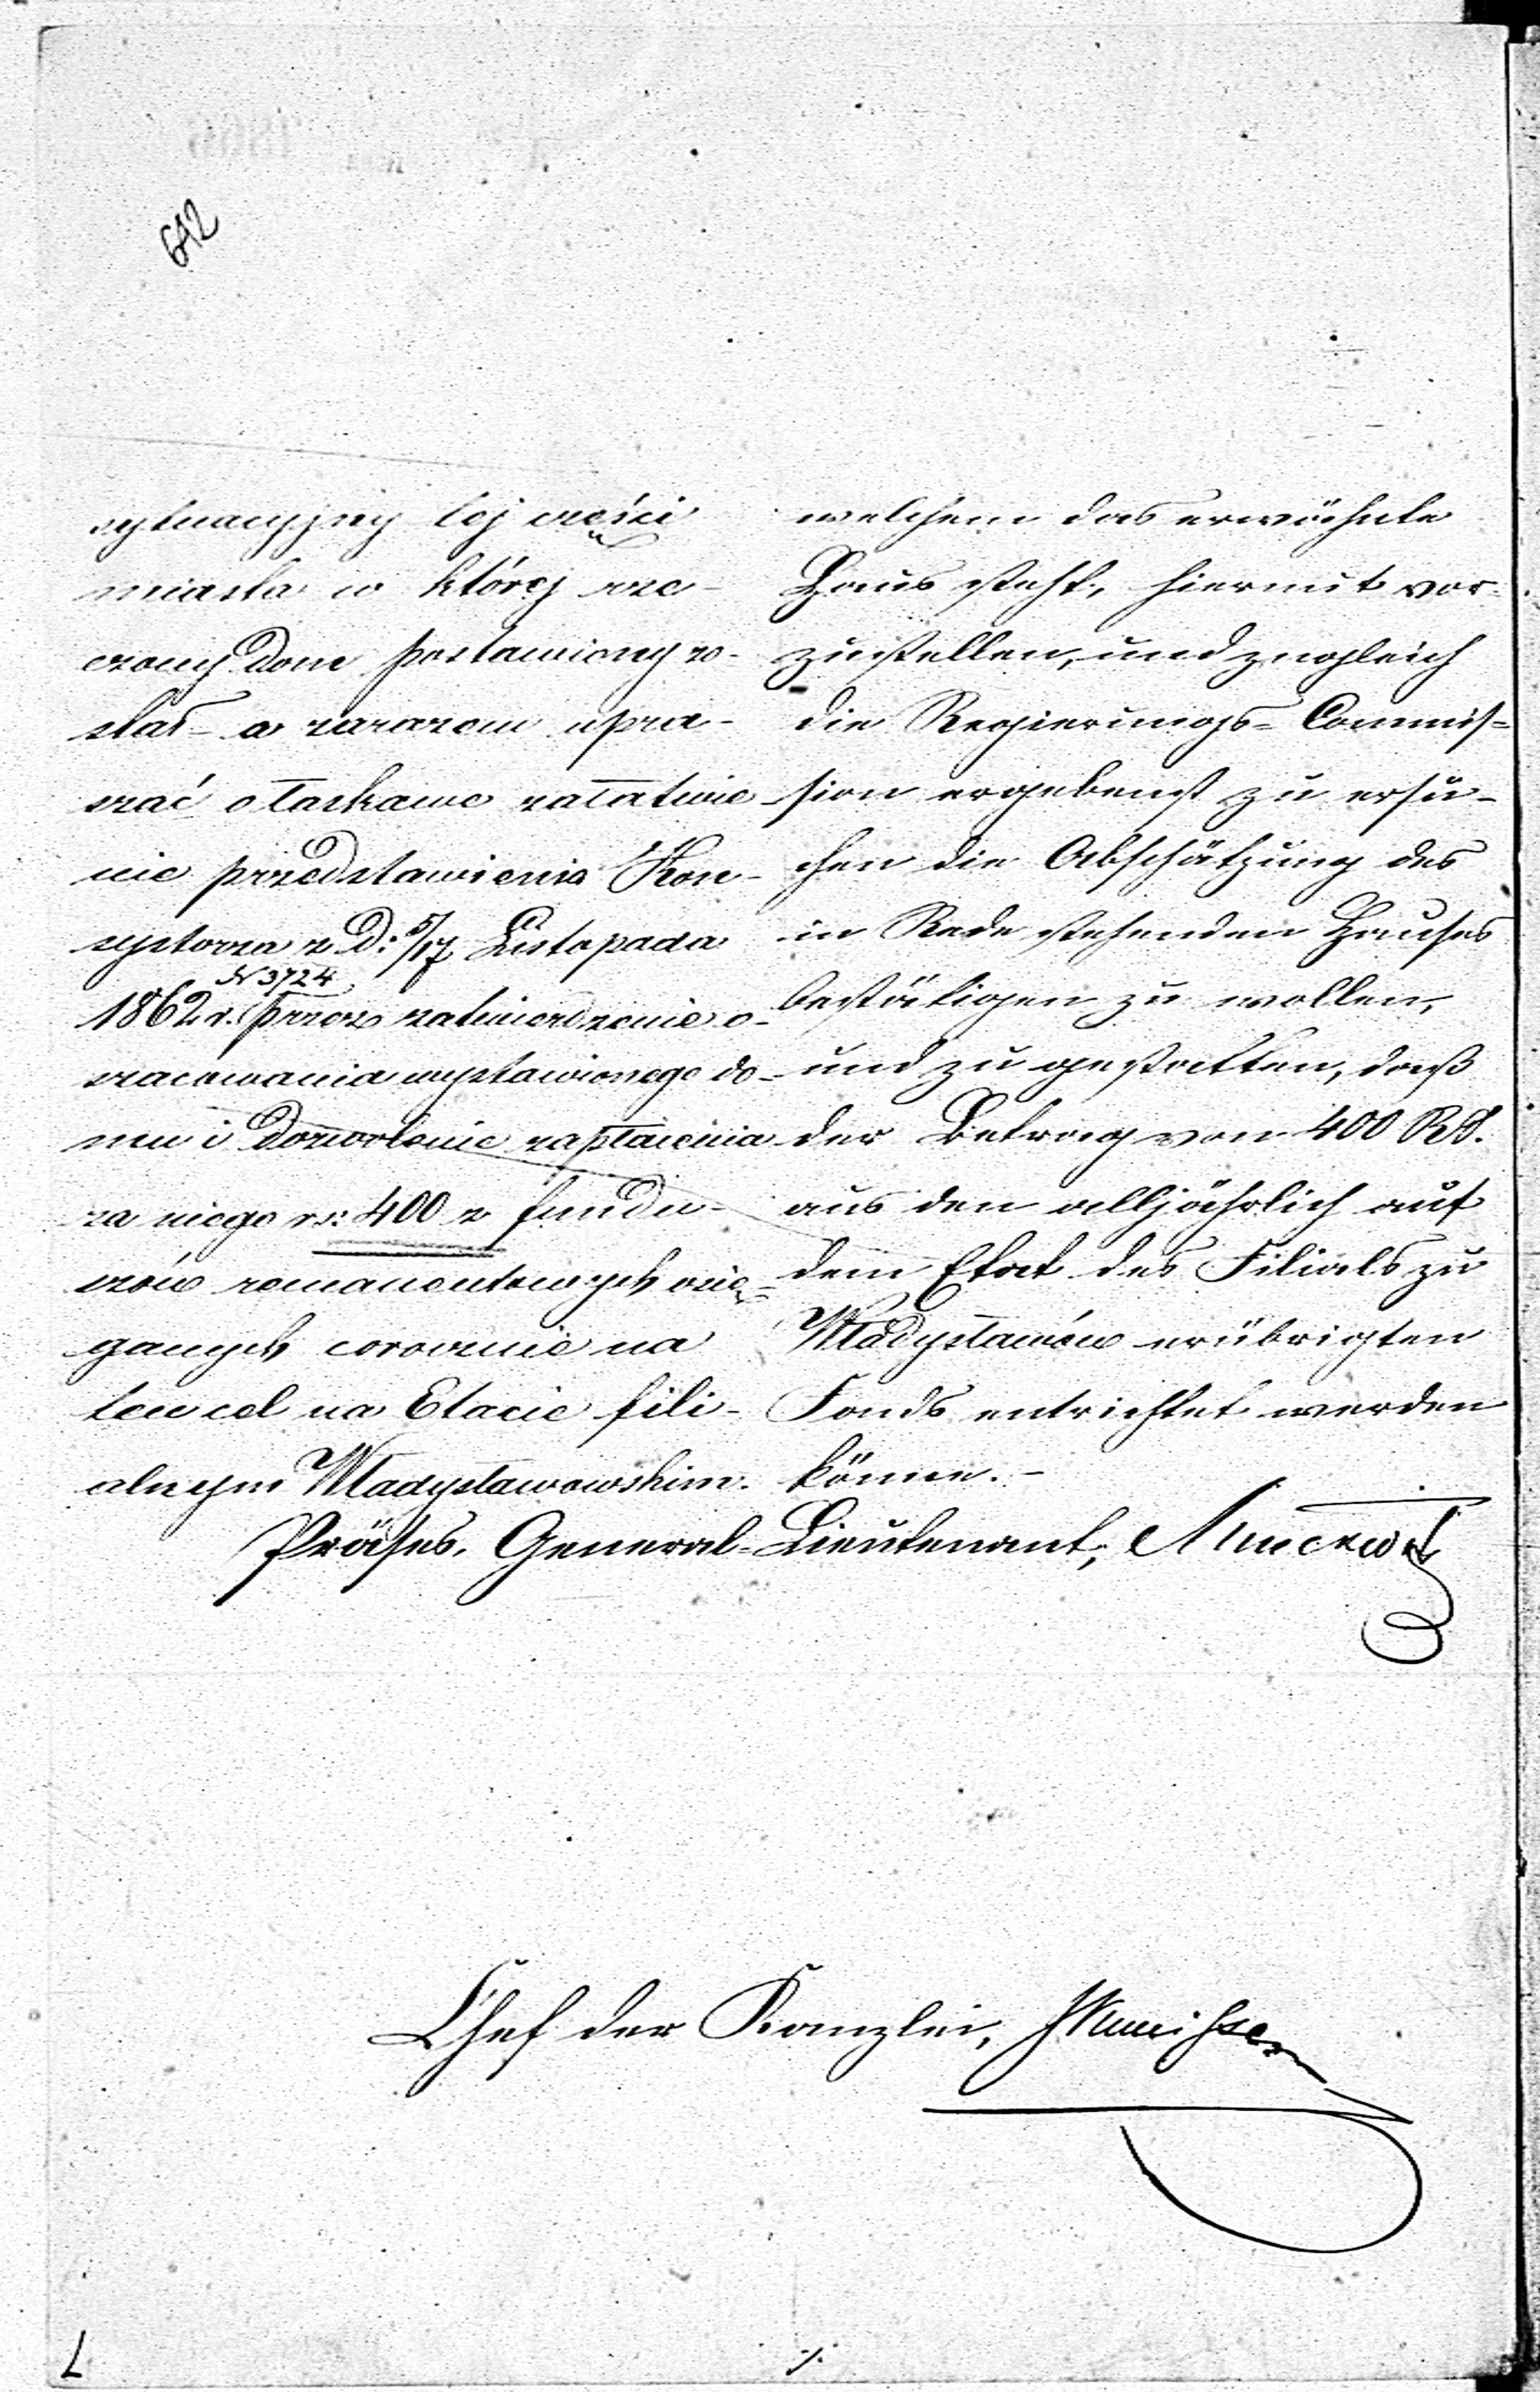 642
sytuacyjny tej części
miasta w której rze-
czony Dom postawiony zo-
stał – a zarazem upra-
szać o łaskawe załatwie-
nie przedstawienia Kon-
systorza z D: 5/17 Listopada
N 3724
1862 r. przez zatwierdzenie o-
szacowania wystawionego do-
mu i Dozwolenie zapłacenia
za niego rs: 400 z fundu-
szów remanentowych osią-
ganych corocznie na
ten cel na Etacie fili-
alnym Władysławowskim.
welchem das erwähnte
Haus steht, hiermit vor-
zustellen, und zugleich
die Regierungs- Commis-
sion ergebenst zu ersu-
chen die Abschätzung des
in Rede stehenden Hauses
bestätigen zu wollen,
und zu gestatten, daß
der Betrag von 400 RS.
aus den alljährlich auf
dem Etat des Filials zu
Władysławów erübrigten
Fonds entrichtet werden
könne. –
Präses, General-Lieutenant,
Chef der Kanzlei,